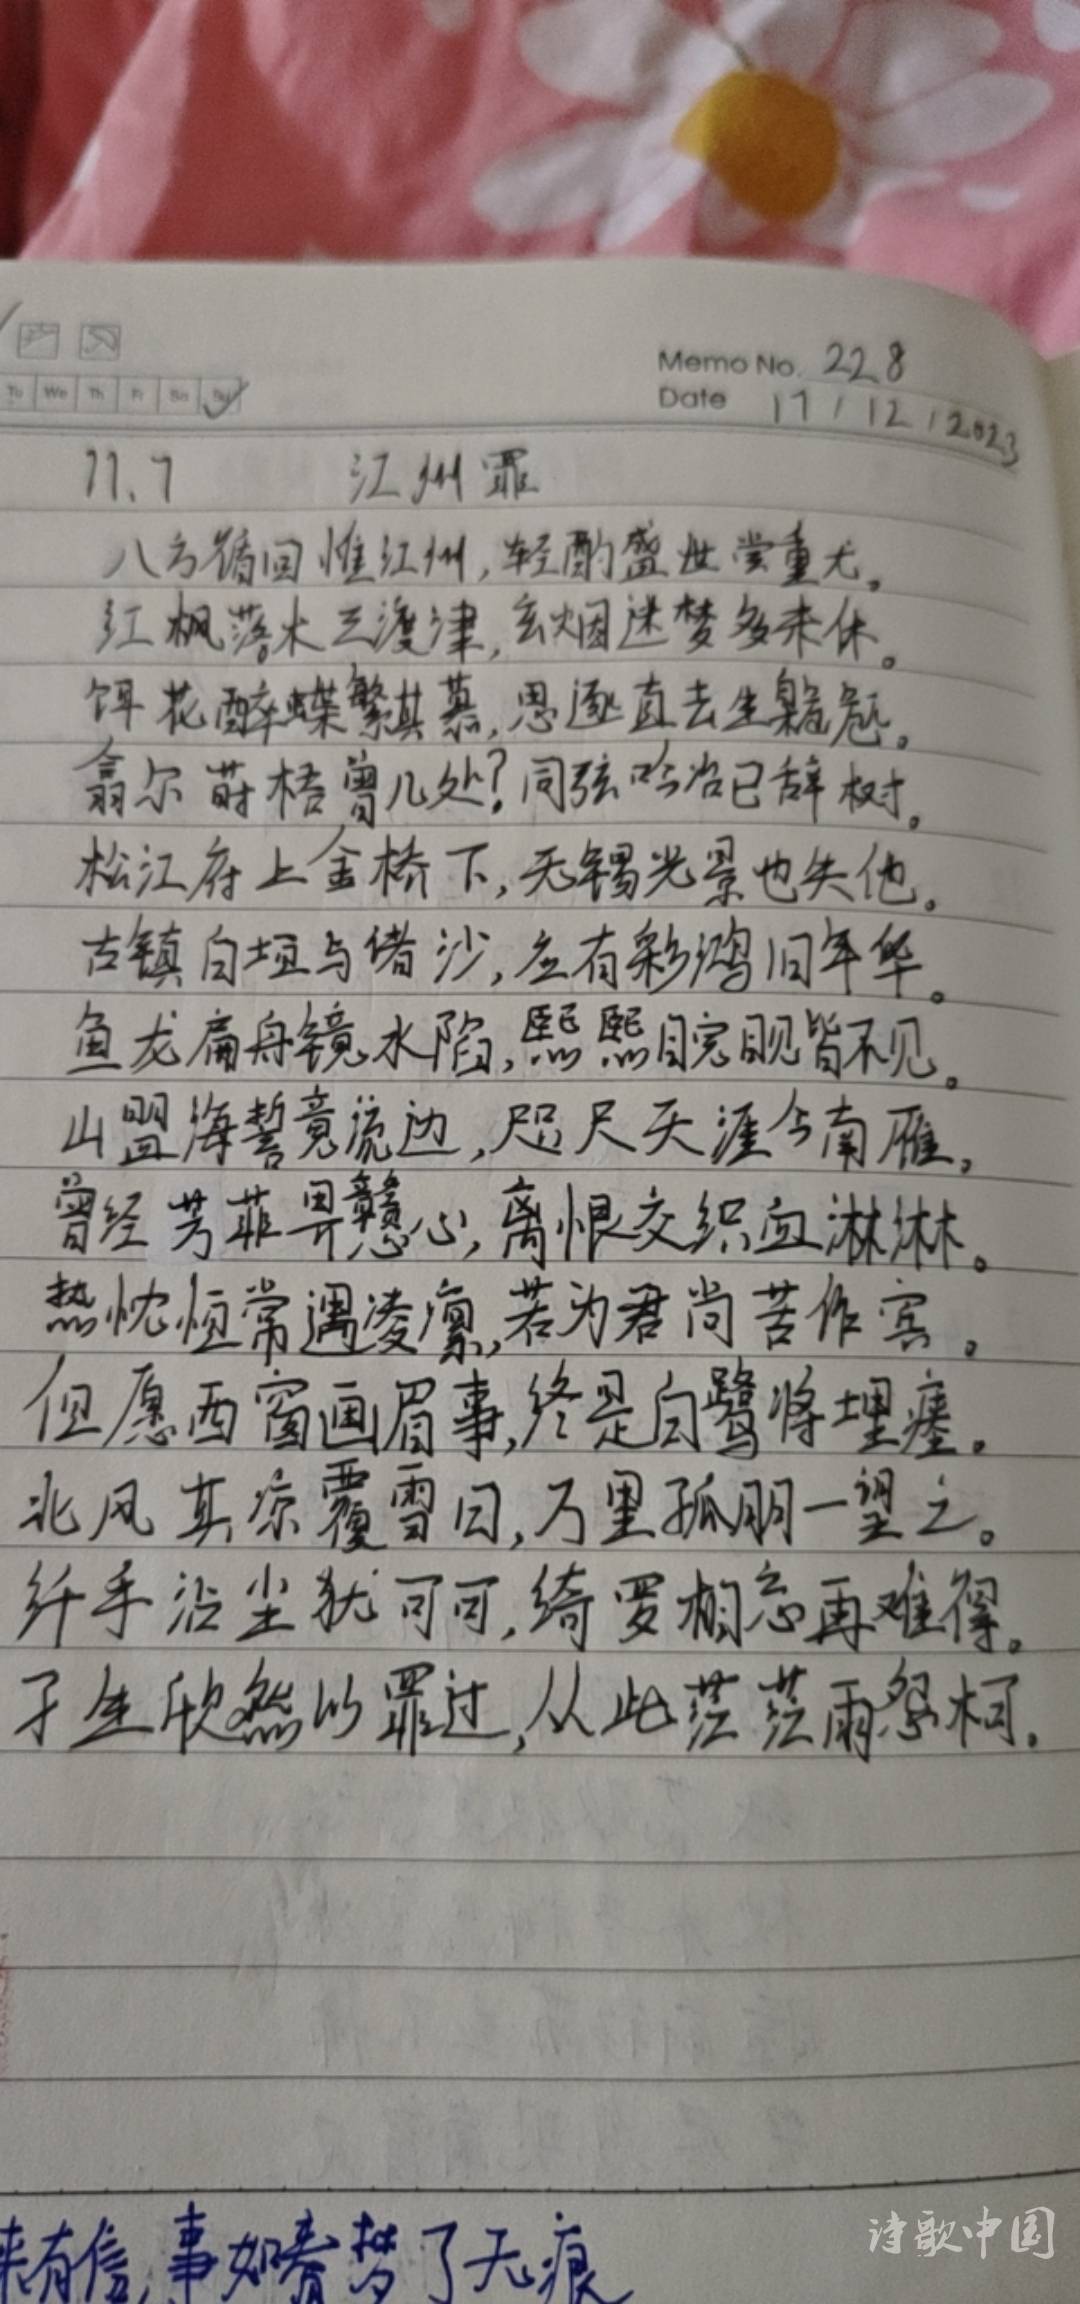 Tu We Th Fr Sa Su
Memo No. 228
Date 17/12/2023
11.7 江州罪
八方循回惟江州，轻酌盛世尝重尤。
红枫落木三渡津，玄烟迷梦多来休。
饵花醉蝶繁其慕，思逐直去生。
翕尔莳梧曾几处？同弦吟咎已辞树。
松江府上金桥下，无锡光景也失他。
古镇白垣与堵沙，应有彩鸿旧年华。
鱼龙扁舟镜水陷，熙熙睆睍皆不见。
山盟海誓竟流边，咫尺天涯今南雁。
曾经芳菲畀戆心，离恨交织血淋淋。
热忱恒常遇凌凛，若为君尚苦作宾。
但愿西窗画眉事，终是白鹭将埋瘗。
北风其凉覆雪日，万里孤朋一望之。
纤手沿尘犹可可，绮罗相忘再难得。
孑生欣然以罪过，从此茫茫雨怨柯。
来有信，事如春梦了无痕
诗歌中国